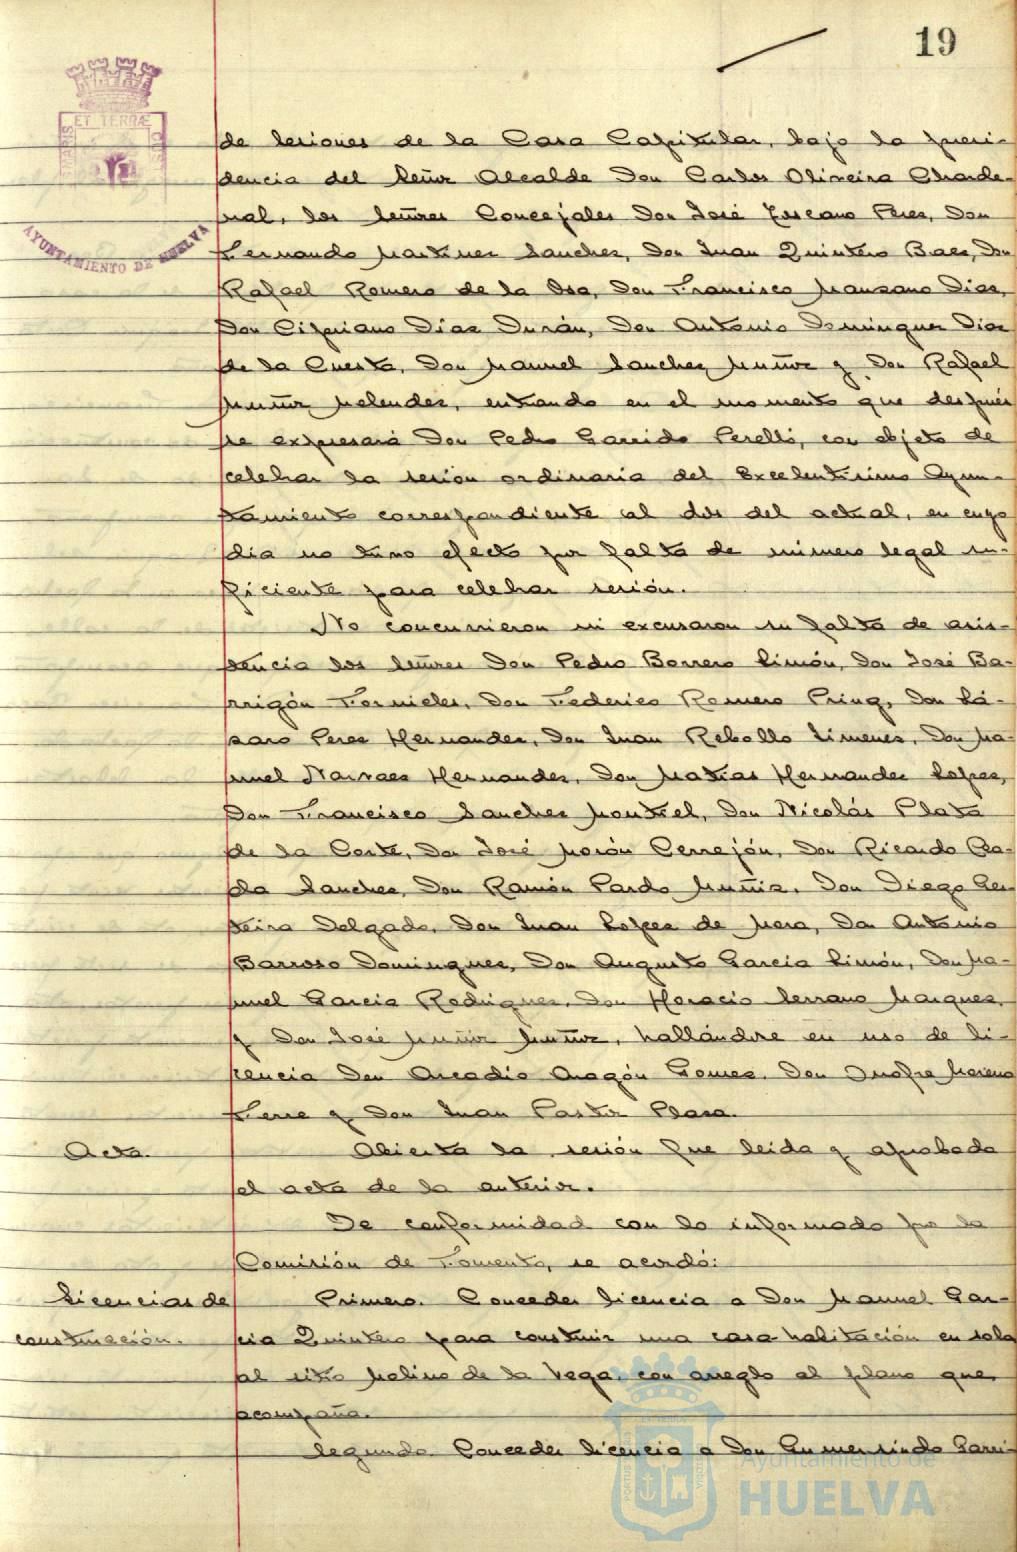 19
ET TERRÆ
MARIS
CUST
AYUNTAMIENTO DE HUELVA
de sesiones de la Casa Capitular, bajo la presi-
dencia del Señor Alcalde Don Carlos Oliveira Charde-
nal, los señores Concejales Don José Toscano Peres, Don
Fernando Martinez Sanchez, Don Juan Quintero Baez, Don
Rafael Romero de la Osa, Don Francisco Manzano Dias,
Don Cipriano Dias Durán, Don Antonio Dominguez Dias
de la Cuesta, Don Manuel Sanchez Muñoz y Don Rafael
Muñoz Melendez, entrando en el momento que después
se expresará Don Pedro Garrido Perelló, con objeto de
celebrar la sesión ordinaria del Excelentísimo Ayun-
tamiento correspondiente al dos del actual, en cuyo
dia no tuvo efecto por falta de número legal su-
ficiente para celebrar sesión.
No concurrieron ni excusaron su falta de asis-
tencia los señores Don Pedro Borrero Limón, Don José Ba-
rrigón Fornieles, Don Federico Romero Pring, Don Lá-
zaro Perez Hernandez, Don Juan Rebollo Jimenez, Don Ma-
nuel Narvaez Hernandez, Don Matías Hernandez Lopez,
Don Francisco Sanchez Montiel, Don Nicolás Plata
de la Corte, Don José Morón Cerrejón, Don Ricardo
Sanchez, Don Ramón Pardo Muñiz, Don Diego
Delgado, Don Juan Lopez de Mera, Don Antonio
Barroso Dominguez, Don Augusto Garcia Limón, Don Ma-
nuel Garcia Rodriguez, Don Horacio Serrano Marquez,
y Don José Muñoz Muñoz, hallándose en uso de li-
cencia Don Arcadio Aragón Gomez, Don Onofre Moreno
y Don Juan Pastor Plaza.
Acta.
Abierta la sesión fue leida y aprobada
el acta de la anterior.
De conformidad con lo informado por la
Comisión de Fomento, se acordó:
Licencias de
construcción.
Primero. Conceder licencia a Don Manuel Gar-
cia Quintero para construir una casa-habitación en solar
al sitio Molino de la Vega, con arreglo al plano que
acompaña.
Segundo. Conceder licencia a Don Gumersindo Garri-
Ayuntamiento de
HUELVA